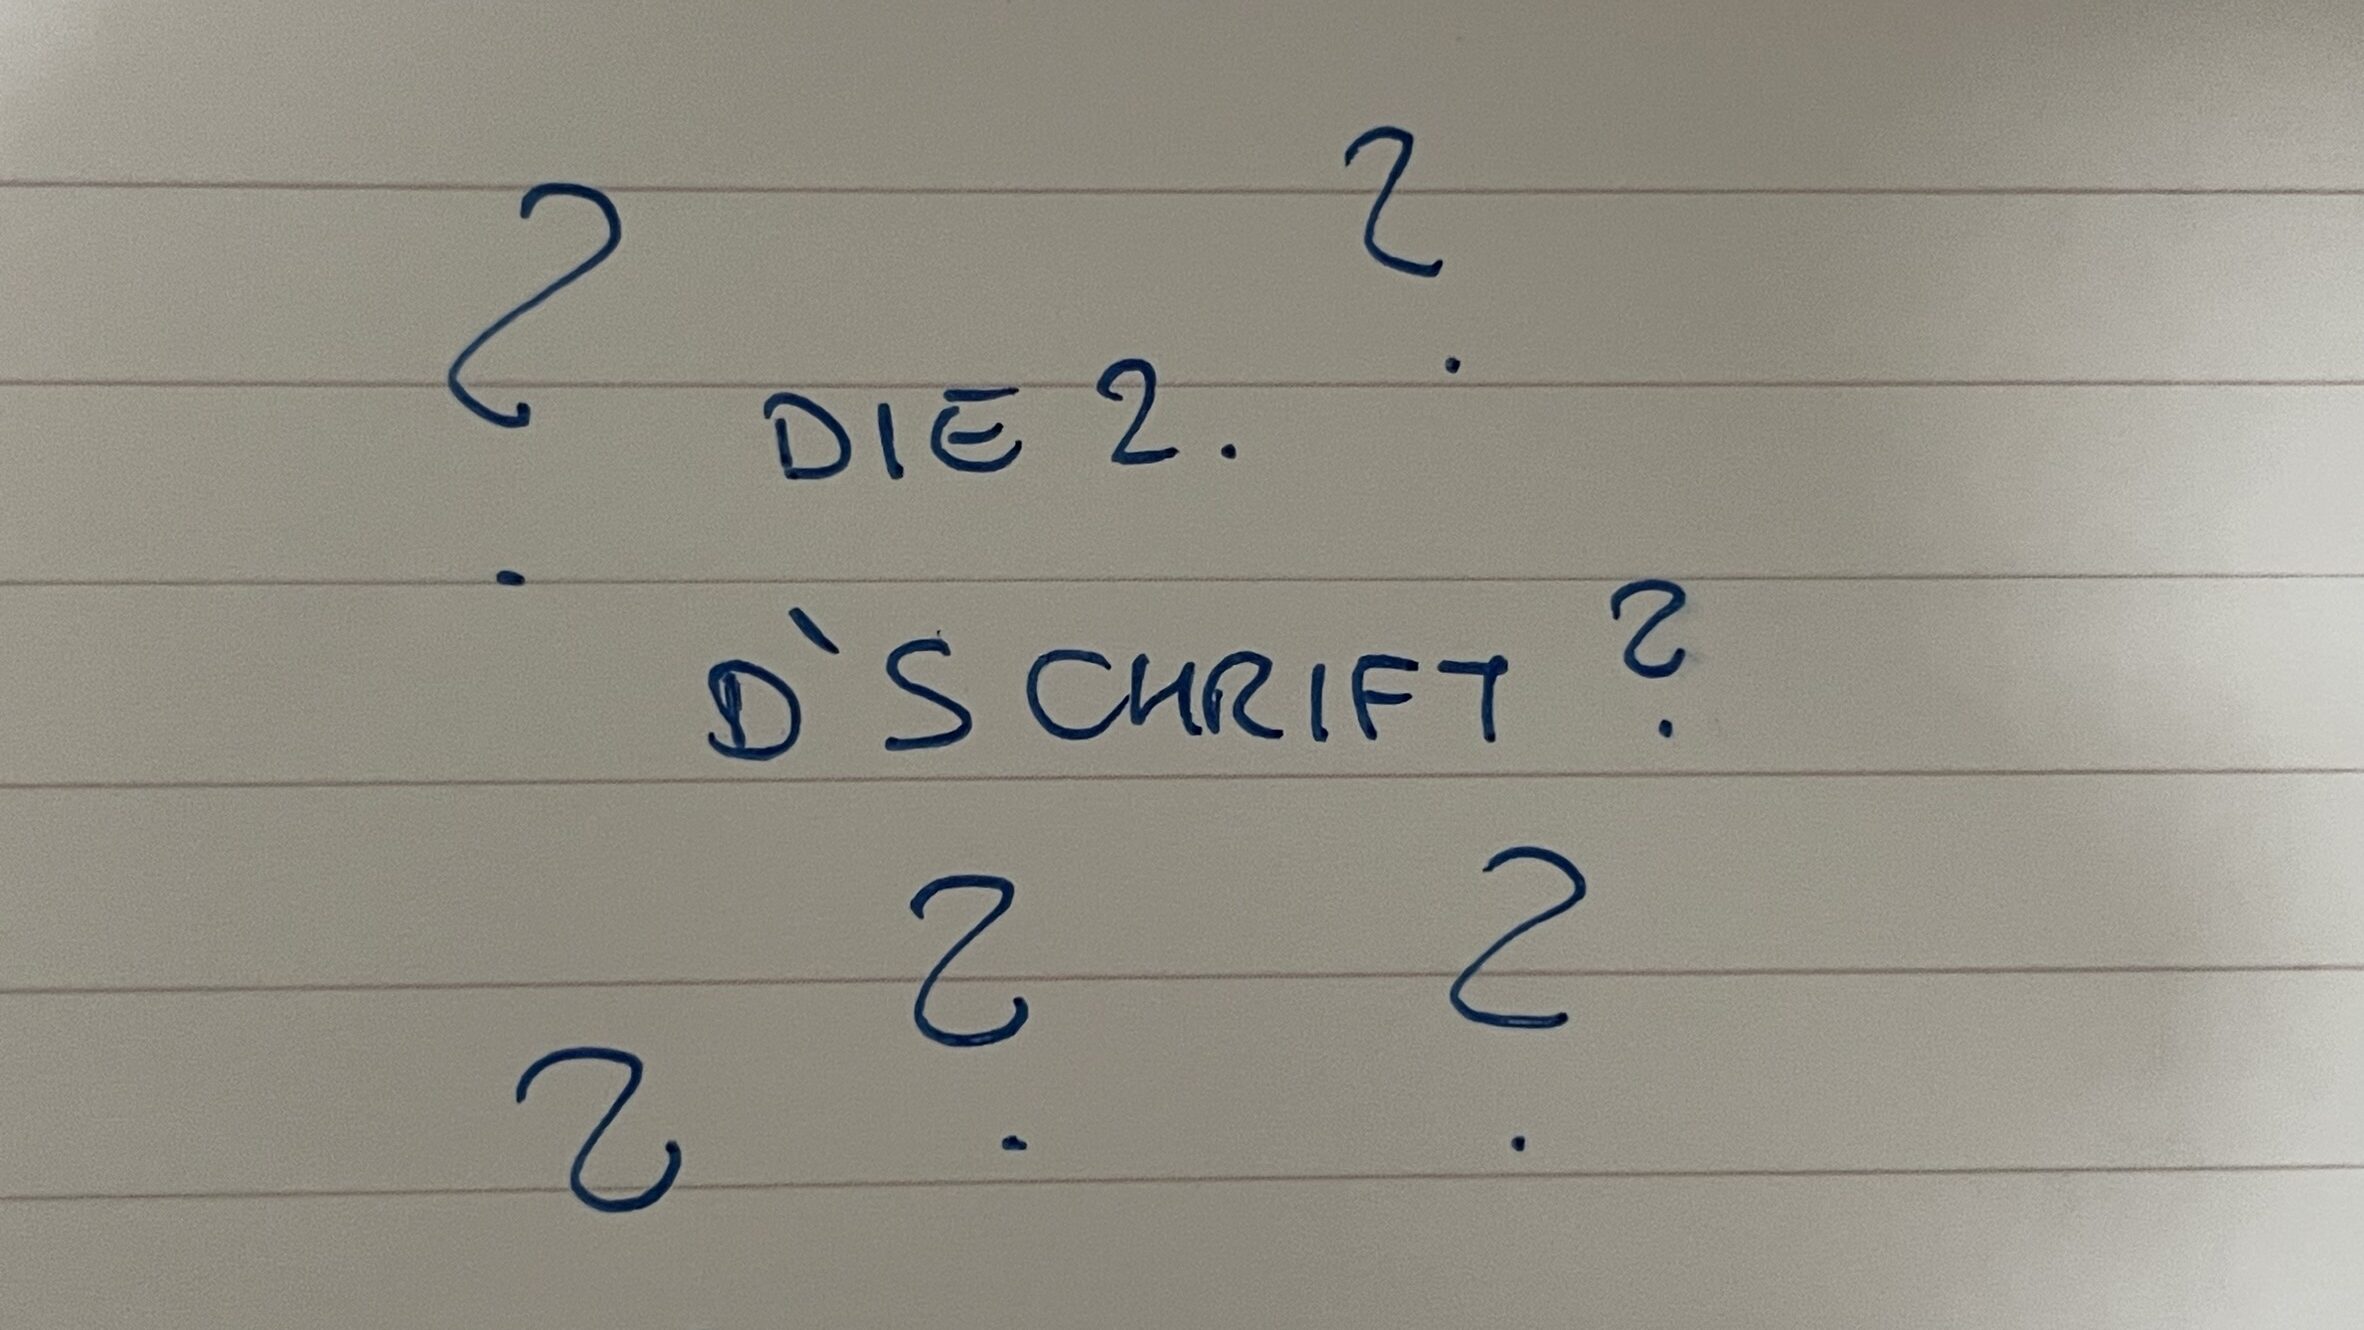 ? ?
DIE 2.
D`SCHRIFT ?
? ?
?